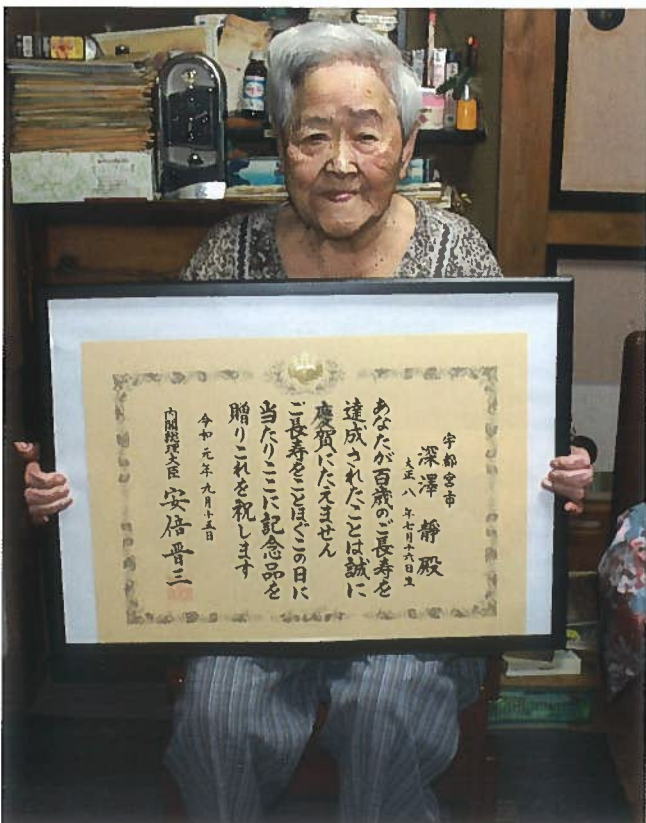 宇都宮市
深澤 靜殿
大正八年七月十六日生
あなたが百歳のご長寿を
達成されたことは誠に
慶賀にたえません
ご長寿をことほぐこの日に
当たりここに記念品を
贈りこれを祝します
令和元年九月十五日
内閣総理大臣 安倍晋三